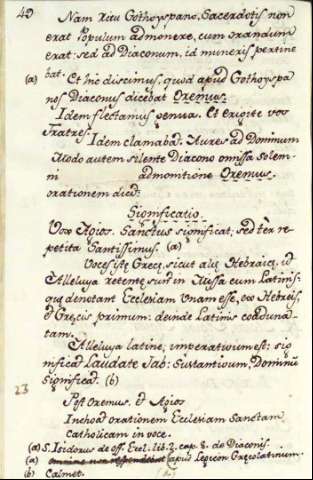 40
Nam ritu Gothoyspano, Sacerdotis non
erat Populum admonere, cum orandum
erat: sed ad Diaconum, id muneris pertine
bat. Et hoc discimus, quod apud Gothoyspa
(a)
nos Diaconus dicebat Oremus.
Idem flectamus genua. Et erigite vos
fratres.
Idem clamabat. Aures ad Dominum
Modo autem silente Diacono omissa solem-
ni admonitione Oremus.
orationem dicit.
Significatio.
Vox Agios. Sanctus significat, sed ter re-
petita Santissimus. (a)
Voces iste Grece, sicut alie Hebraice, id
Alleluya retente sunt in Missa cum Latinis:
que denotant Ecclesiam Unam esse, ex Hebreis,
et Grecis primum: deinde Latinis coaduna-
tam.
Alleluya latine, imperativum est: sig
nificat Laudate Jab: Sustantivum, Dominum
Significat. (b)
23
Post Oremus. et Agios
Inchoat orationem Ecclesiam Sanctam
catholicam in voce.
(a) S. Isidorus de off. Eccl. lib. 2. cap. 8. de Diaconis.
(a) apud Lexicon Grecolatinum.
(b) Calmet.